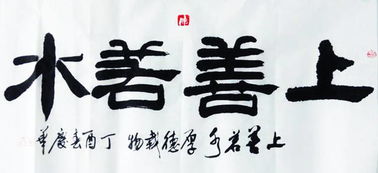 上善若水
上善若水 厚德载物 丁酉春庆華